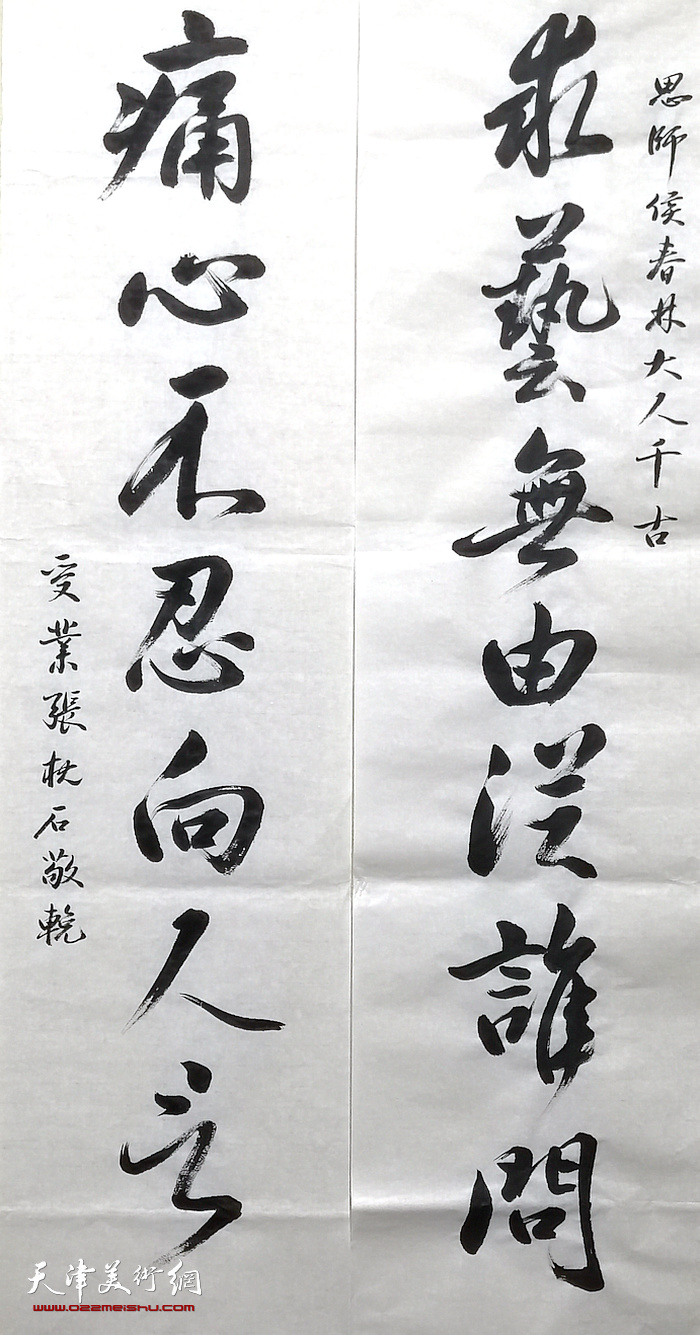 思師侯春林大人千古
求藝無由從誰問
痛心不忍向人言
受業張枕石敬輓
天津美術網
www.022meishu.com